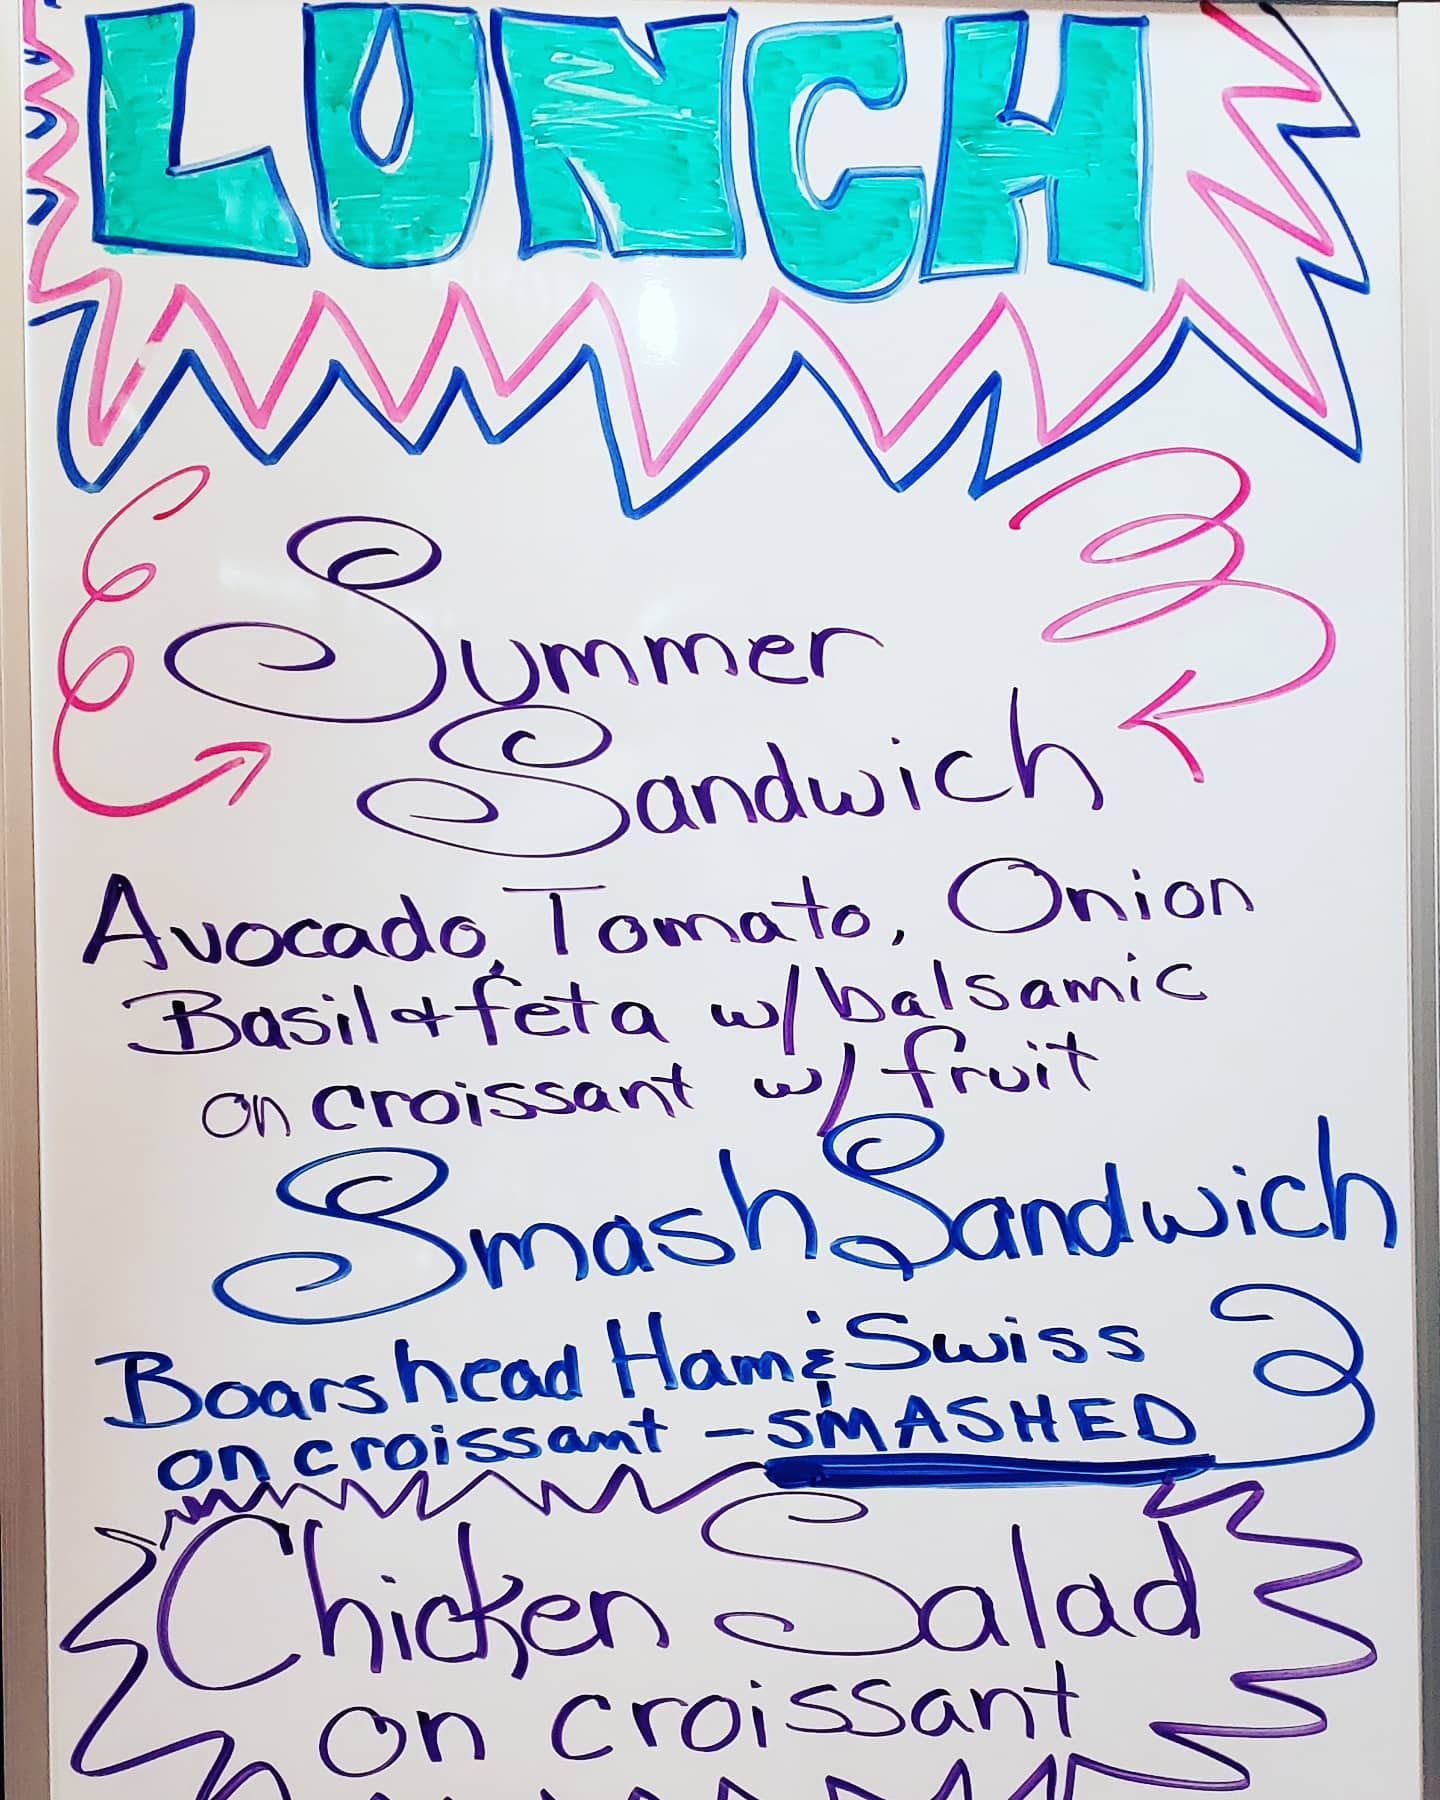 LUNCH
Summer
Sandwich
Avocado, Tomato, Onion
Basil & feta w/ balsamic
on croissant w/ fruit
Smash Sandwich
Boarshead Ham & Swiss
on croissant - SMASHED
Chicken Salad
on croissant